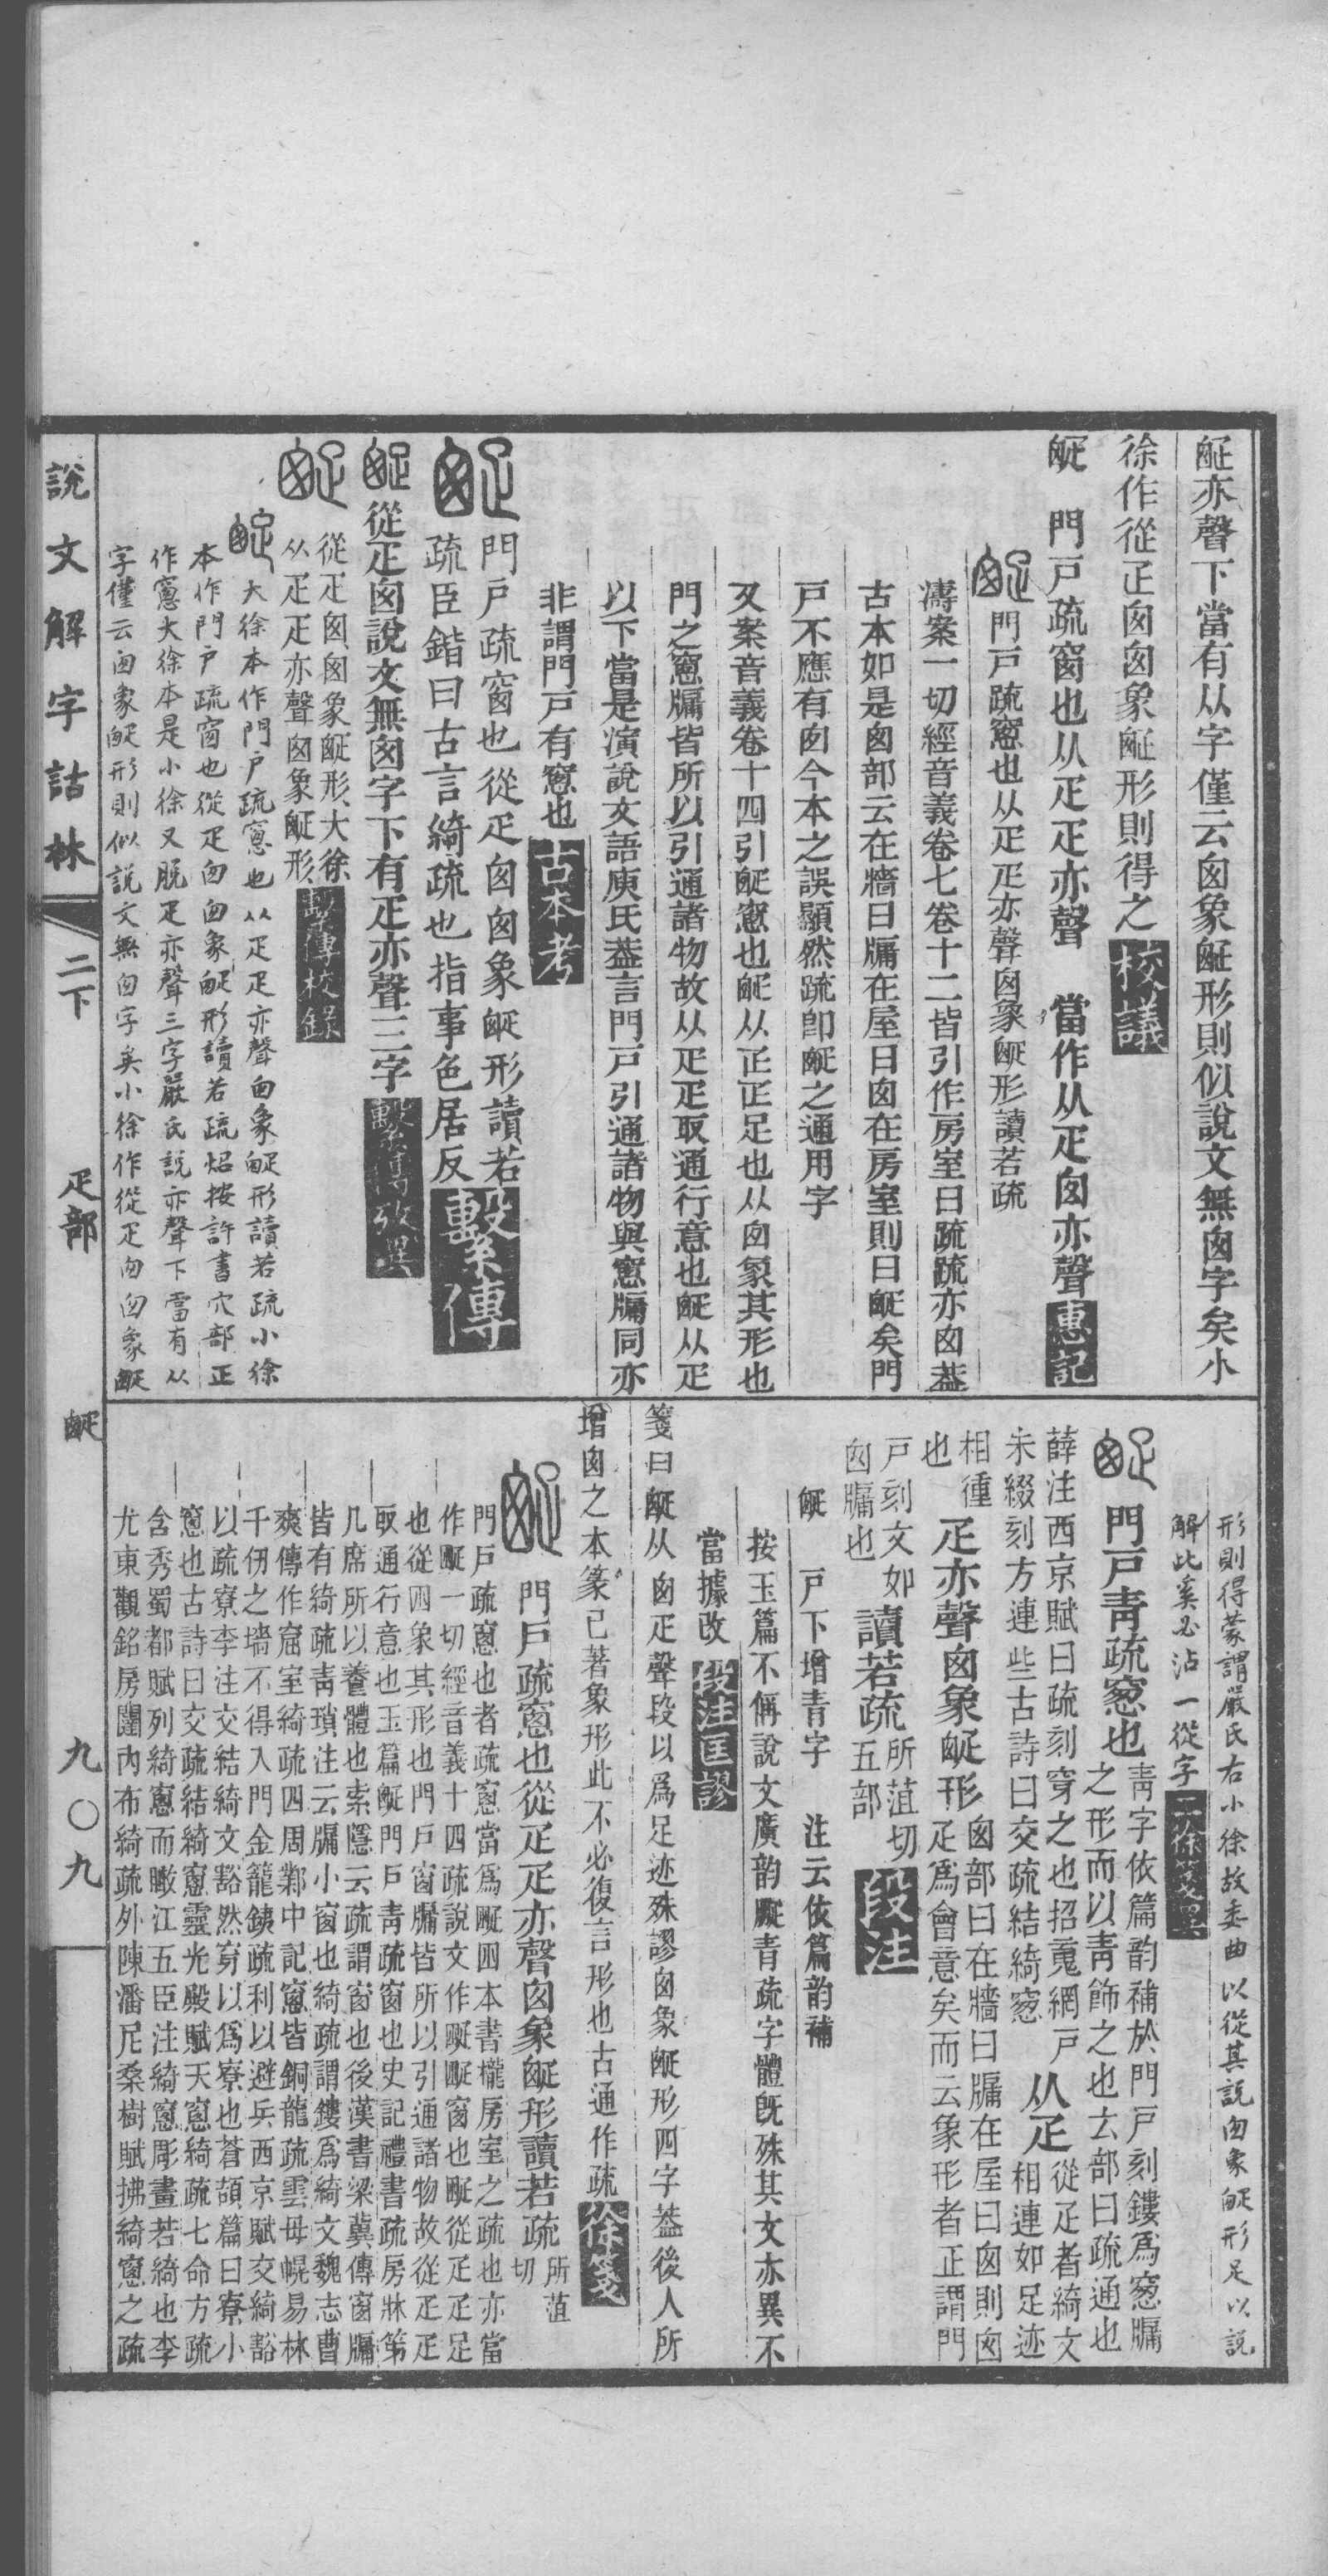 𤴙亦聲下當有从字僅云囪象𤴙形則似說文無囪字矣小
徐作從疋囪囪象𤴙形則得之 校議
𤴙　門戸疏窗也从疋疋亦聲　當作从疋囪亦聲 惠記
門戸疏窻也从疋疋亦聲囪象𤴙形讀若疏
濤案一切經音義卷七卷十二皆引作房室曰疏疏亦囪葢
古本如是囪部云在牆曰牖在屋曰囪在房室則曰𤴙矣門
戸不應有囪今本之誤顯然疏卽𤴙之通用字
又案音義卷十四引𤴙窻也𤴙从疋疋足也从囪象其形也
門之窻牖皆所以引通諸物故从疋疋取通行意也𤴙从疋
以下當是演說文語庾氏葢言門戸引通諸物與窻牖同亦
非謂門戸有窻也 古本考
門戸疏窗也從疋囪囪象𤴙形讀若
疏臣鍇曰古言綺疏也指事色居反 繫傳
從疋囪說文無囪字下有疋亦聲三字 繫傳攷異
從疋囪囪象𤴙形大徐
从疋疋亦聲囪象𤴙形 繫傳校錄
大徐本作門戸疏窻也从疋疋亦聲囪象𤴙形讀若疏小徐
本作門戸疏窗也從疋囪囪象𤴙形讀若疏炤按許書穴部正
作窻大徐本是小徐又脫疋亦聲三字嚴氏說亦聲下當有从
字僅云囪象𤴙形則似說文無囪字矣小徐作從疋囪囪象𤴙
說文解字詁林　二下　疋部　𤴙　九〇九
形則得蒙謂嚴氏右小徐故委曲以從其說囪象𤴙形足以說
解此奚必沾一從字 二徐箋異
門戸靑疏窻也 靑字依篇韵補於門戸刻鏤爲窻牖
之形而以靑飾之也𠫓部曰疏通也
薛注西京賦曰疏刻穿之也招䰟網戸
朱綴刻方連些古詩曰交疏結綺窻 从疋 從疋者綺文
相連如足迹
相㣫
也 疋亦聲囪象𤴙形 囪部曰在牆曰牖在屋曰囪則囪
疋爲會意矣而云象形者正謂門
戸刻文如
囪牖也 讀若疏 所菹切
五部 段注
𤴙　戸下增青字　注云依篇韵補
按玉篇不偁說文廣韵𤴙青疏字體旣殊其文亦異不
當據改 段注匡謬
箋曰𤴙从囪疋聲段以爲足迹殊謬囪象𤴙形四字葢後人所
增囪之本篆已著象形此不必復言形也古通作疏 徐箋
門戸疏窻也從疋疋亦聲囪象𤴙形讀若疏 所菹
切
門戸疏窻也者疏窻當爲𤴙囪本書櫳房室之疏也亦當
作𤴙一切經音義十四疏說文作𤴙𤴙窗也𤴙從疋疋足
也從囪象其形也門戸窗牖皆所以引通諸物故從疋疋
取通行意也玉篇𤴙門戸靑疏窗也史記禮書疏房牀第
几席所以養體也索隱云疏謂窗也後漢書梁冀傳窗牖
皆有綺疏靑瑣注云牖小窗也綺疏謂鏤爲綺文魏志曹
爽傳作窟室綺疏四周鄴中記窻皆銅龍疏雲母幌易林
千仞之墻不得入門金籠鐵疏利以避兵西京賦交綺豁
以疏寮李注交結綺文豁然穿以爲寮也蒼頡篇曰寮小
窻也古詩曰交疏結綺窻靈光殿賦天窻綺疏七命方疏
含秀蜀都賦列綺窻而瞰江五臣注綺窻彫畫若綺也李
尤東觀銘房闥內布綺疏外陳潘尼桑樹賦拂綺窻之疏